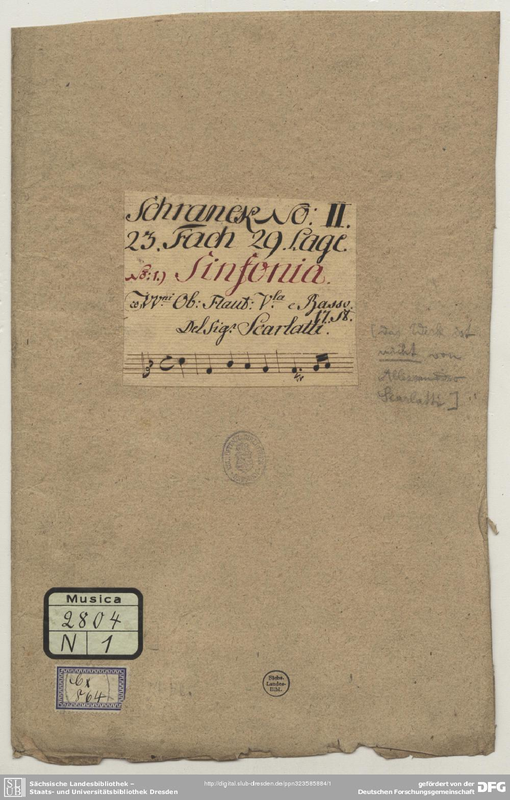 Schranck No: II.
23. Fach 29. Lage.
No: 1.) Sinfonia.
co VVni Ob: Flaut: V.la e Basso.
17. St.
Del Sigr Scarlatti.
[das Werk ist
nicht von
Allessandro
Scarlatti]
Sächs.
Landes-
Bibl.
Musica
2804
N 1
Sächsische Landesbibliothek –
Staats- und Universitätsbibliothek Dresden
http://digital.slub-dresden.de/ppn323565884/1
gefördert von der
Deutschen Forschungsgemeinschaft
DFG